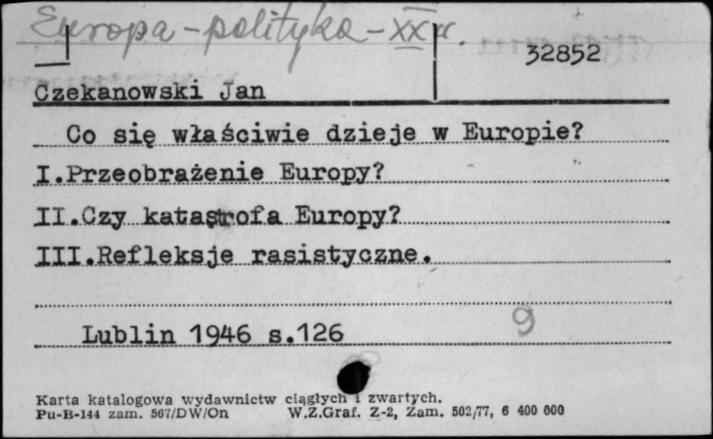 Europa-polityka-XX w.
32852
Czekanowski Jan
Co się właściwie dzieje w Europie?
I.Przeobrażenie Europy?
II.Czy katastrofa Europy?
III.Refleksje rasistyczne.
Lublin 1946 s.126
9
Karta katalogowa wydawnictw ciągłych i zwartych.
Pu-B-144 zam. 567/DW/On W.Z.Graf. Z-2, Zam. 502/77, 6 400 000